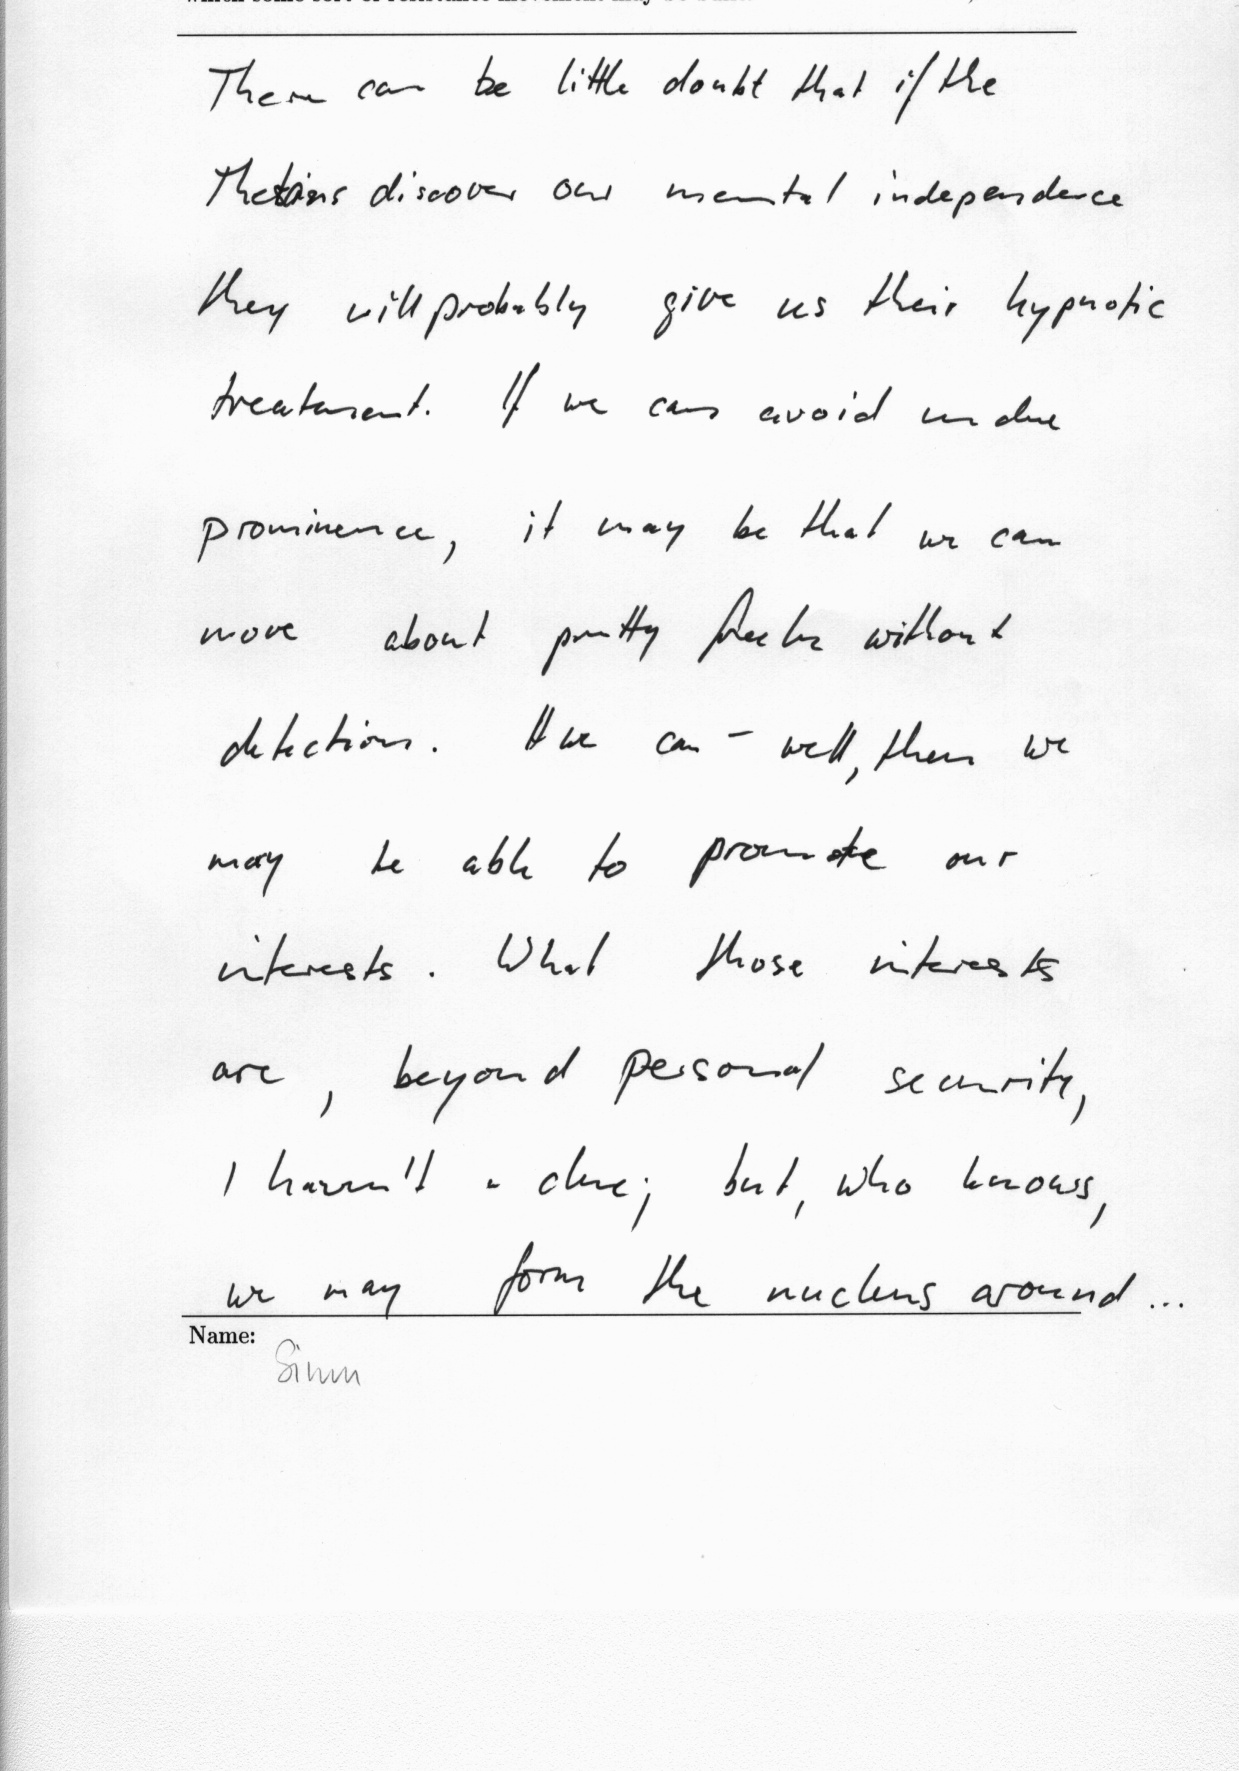 There can be little doubt that if the
Thetans discover our mental independence
they will probably give us their hypnotic
treatment. If we can avoid undue
prominence, it may be that we can
move about pretty freely without
detection. If we can - well, then we
may be able to promote our
interests. What those interests
are, beyond personal security,
I haven't a clue; but, who knows,
we may form the nucleus around...
Name: